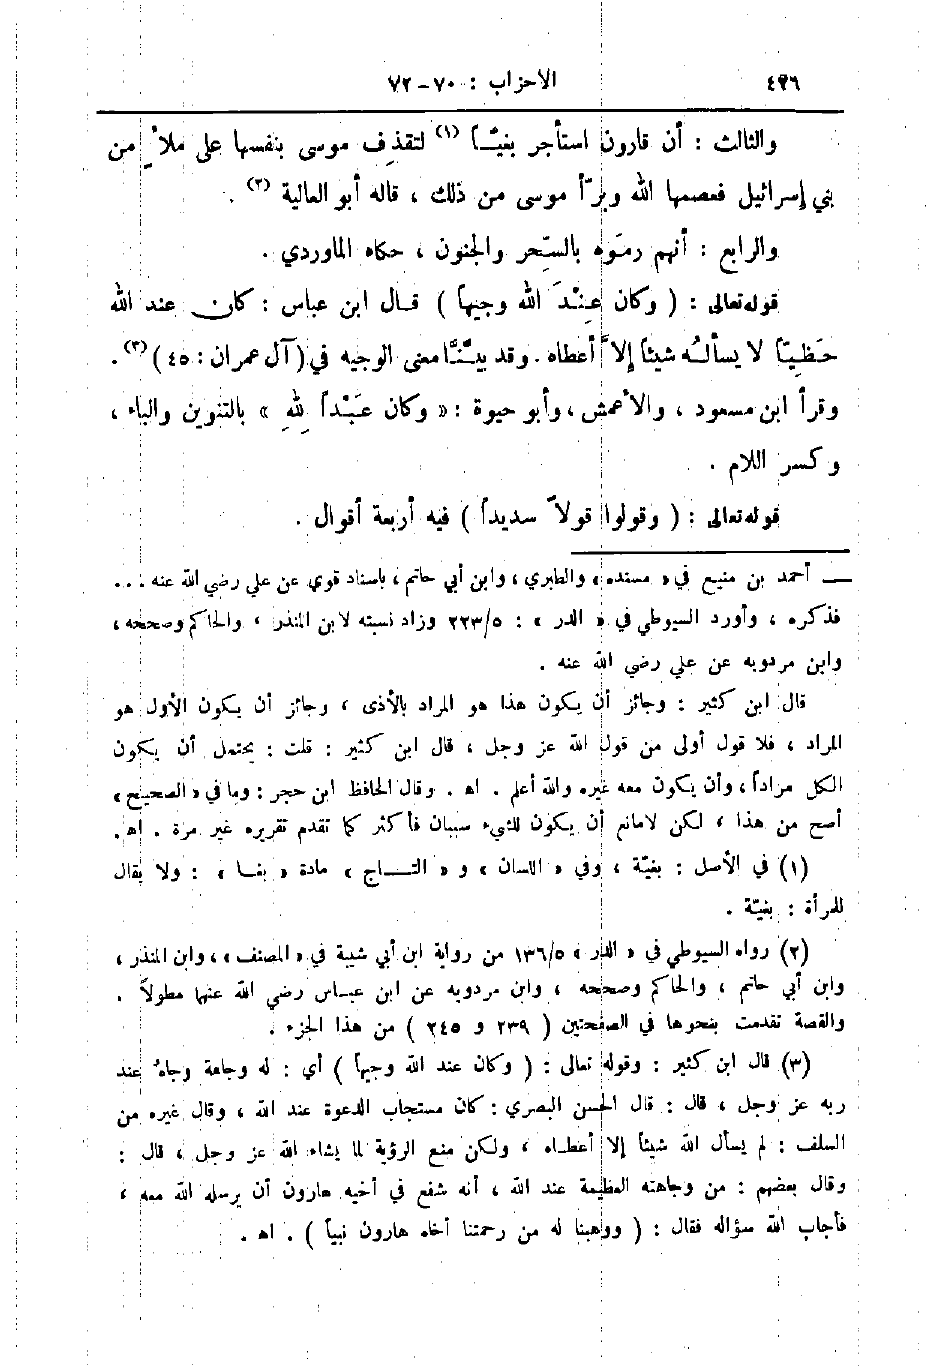 ٤٢٦ الأحزاب : ٧٠-٧٢
والثالث : أن قارون استأجر بغيّـاً (١) لتقذف موسى بنفسها على ملأٍ من
بني إسرائيل فعصمها الله وبرّأ موسى من ذلك ، قاله أبو العالية (٢) .
والرابع : أنهم رمَوه بالسِّحر والجنون ، حكاه الماوردي .
قوله تعالى : ( وكان عِنْدَ الله وجيهاً ) قـال ابن عباس : كان عند الله
حَظِيّاً لا يسألُه شيئاً إلاَّ أعطاه . وقد بيَّنَّا معنى الوجيه في ( آل عمران : ٤٥ ) (٣) .
وقرأ ابن مسعود ، والأعمش ، وأبو حيوة : « وكان عَبْداً لِلهِ » بالتنوين والباء ،
وكسر اللام .
قوله تعالى : ( وقولوا قولاً سديداً ) فيه أربعة أقوال .
— أحمد بن منيع في « مسنده » والطبري ، وابن أبي حاتم ، بإسناد قوي عن علي رضي الله عنه ...
فذكره ، وأورد السيوطي في « الدر » : ٢٢٣/٥ وزاد نسبته لابن المنذر ، والحاكم وصححه ،
وابن مردويه عن علي رضي الله عنه .
قال ابن كثير : وجائز أن يكون هذا هو المراد بالأذى ، وجائز أن يكون الأول هو
المراد ، فلا قول أولى من قول الله عز وجل ، قال ابن كثير : قلت : يحتمل أن يكون
الكل مراداً ، وأن يكون معه غيره والله أعلم . اه . وقال الحافظ ابن حجر : وما في « الصحيح »
أصح من هذا ، لكن لا مانع أن يكون للشيء سببان فأكثر كما تقدم تقريره غير مرة . اه .
(١) في الأصل : بغيّة ، وفي « اللسان » و « التـاج » مادة « بغـا » : ولا يقال
للمرأة : بغيّة .
(٢) رواه السيوطي في « الدر » ١٣٦/٥ من رواية ابن أبي شيبة في « المصنف » ، وابن المنذر ،
وابن أبي حاتم ، والحاكم وصححه ، وابن مردويه عن ابن عبـاس رضي الله عنهما مطولاً .
والقصة تقدمت بنحوها في الصفحتين ( ٢٣٩ و ٢٤٥ ) من هذا الجزء .
(٣) قال ابن كثير : وقوله تعالى : ( وكان عند الله وجيهاً ) أي : له وجاهة وجاهٌ عند
ربه عز وجل ، قال : قال الحسن البصري : كان مستجاب الدعوة عند الله ، وقال غيره من
السلف : لم يسأل الله شيئاً إلا أعطـاه ، ولكن منع الرؤية لما يشاء الله عز وجل ، قال :
وقال بعضهم : من وجاهته العظيمة عند الله ، أنه شفع في أخيه هارون أن يرسله الله معه ،
فأجاب الله سؤاله فقال : ( ووهبنا له من رحمتنا أخاه هارون نبياً ) . اه .